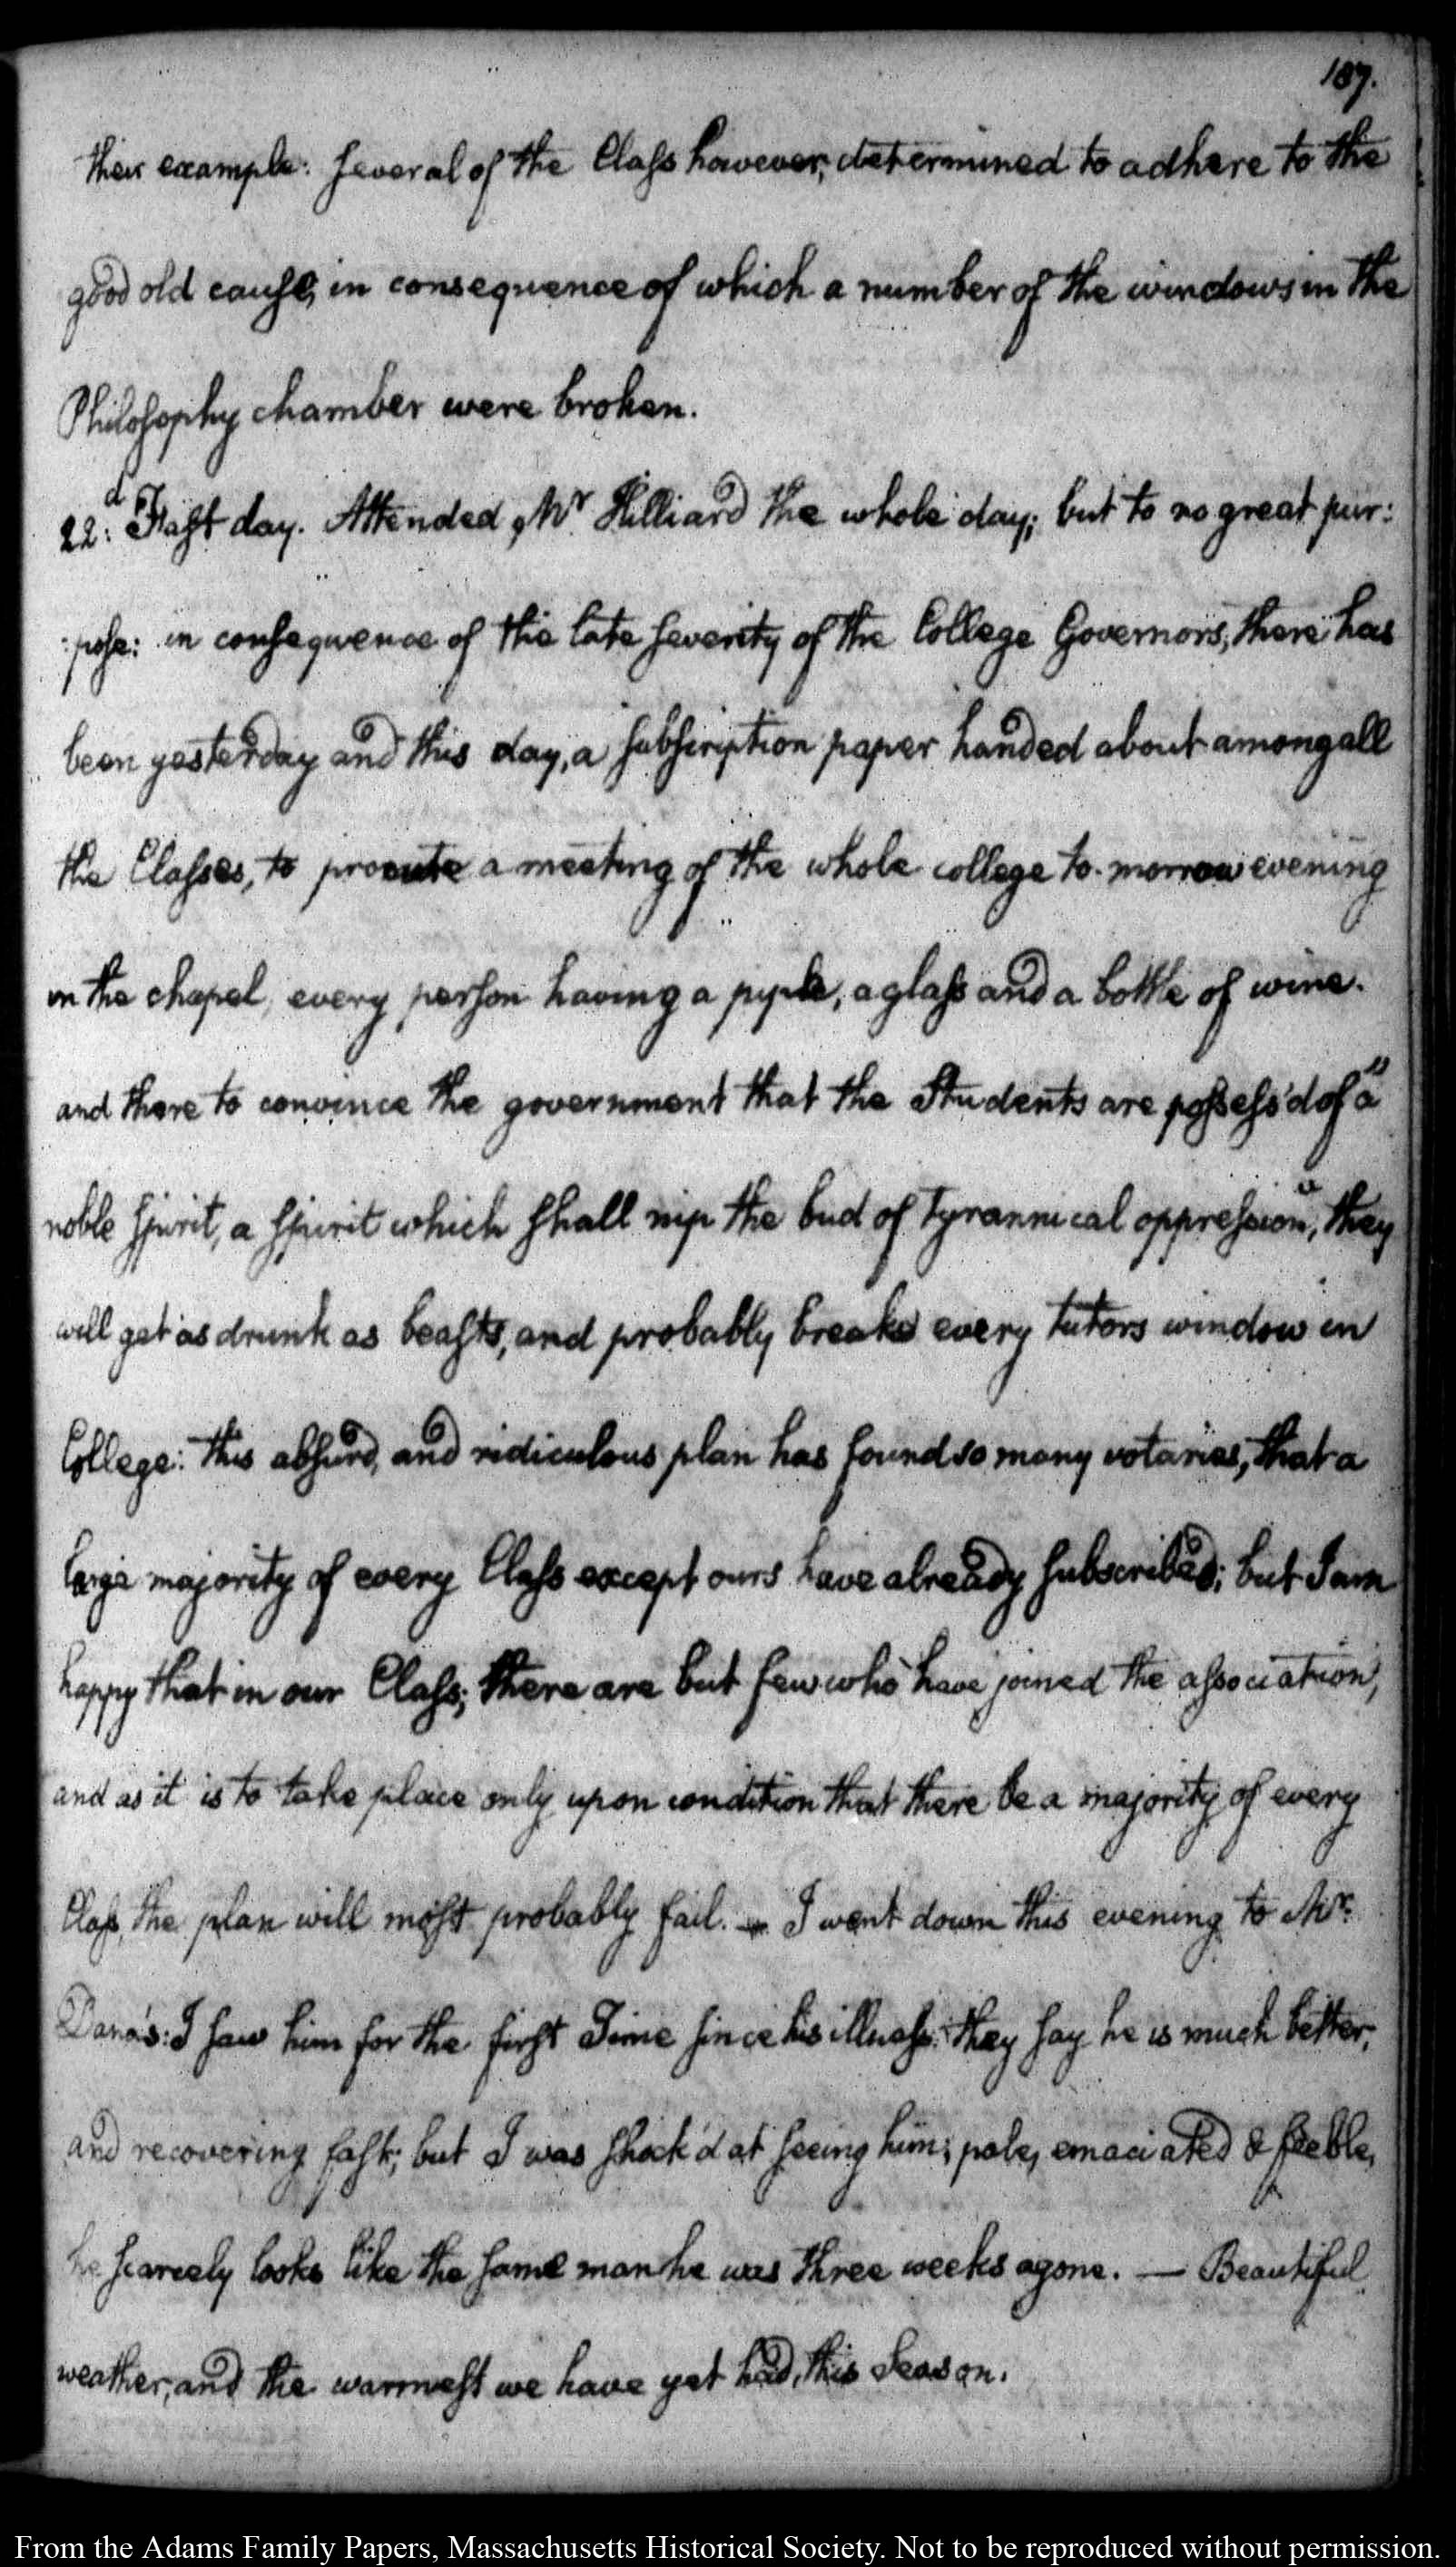 187.
their example: several of the Class however, determined to adhere to the
good old cause, in consequence of which a number of the windows in the
Philosophy chamber were broken.
22.d Fast day. Attended Mr. Hilliard the whole day; but to no great pur:
:pose: in consequence of the late severity of the College Governors, there has
been yesterday and this day, a subscription paper handed about among all
the Classes, to procure a meeting of the whole college to-morrow evening
in the chapel, every person having a pipe, a glass and a bottle of wine.
and there to convince the government that the Students are possess'd of "a
noble spirit, a spirit which shall nip the bud of tyrannical oppression," they
will get as drunk as beasts, and probably break every tutors window in
College: this absurd, and ridiculous plan has found so many votaries, that a
large majority of every Class except ours have already subscribed; but I am
happy that in our Class, there are but few who have joined the association,
and as it is to take place only upon condition that there be a majority of every
Class, the plan will most probably fail. — I went down this evening to Mr.
Dana's: I saw him for the first Time since his illness: they say he is much better,
and recovering fast; but I was shock'd at seeing him; pale, emaciated & feeble,
he scarcely looks like the same man he was three weeks agone. — Beautiful
weather, and the warmest we have yet had, this Season.
From the Adams Family Papers, Massachusetts Historical Society. Not to be reproduced without permission.